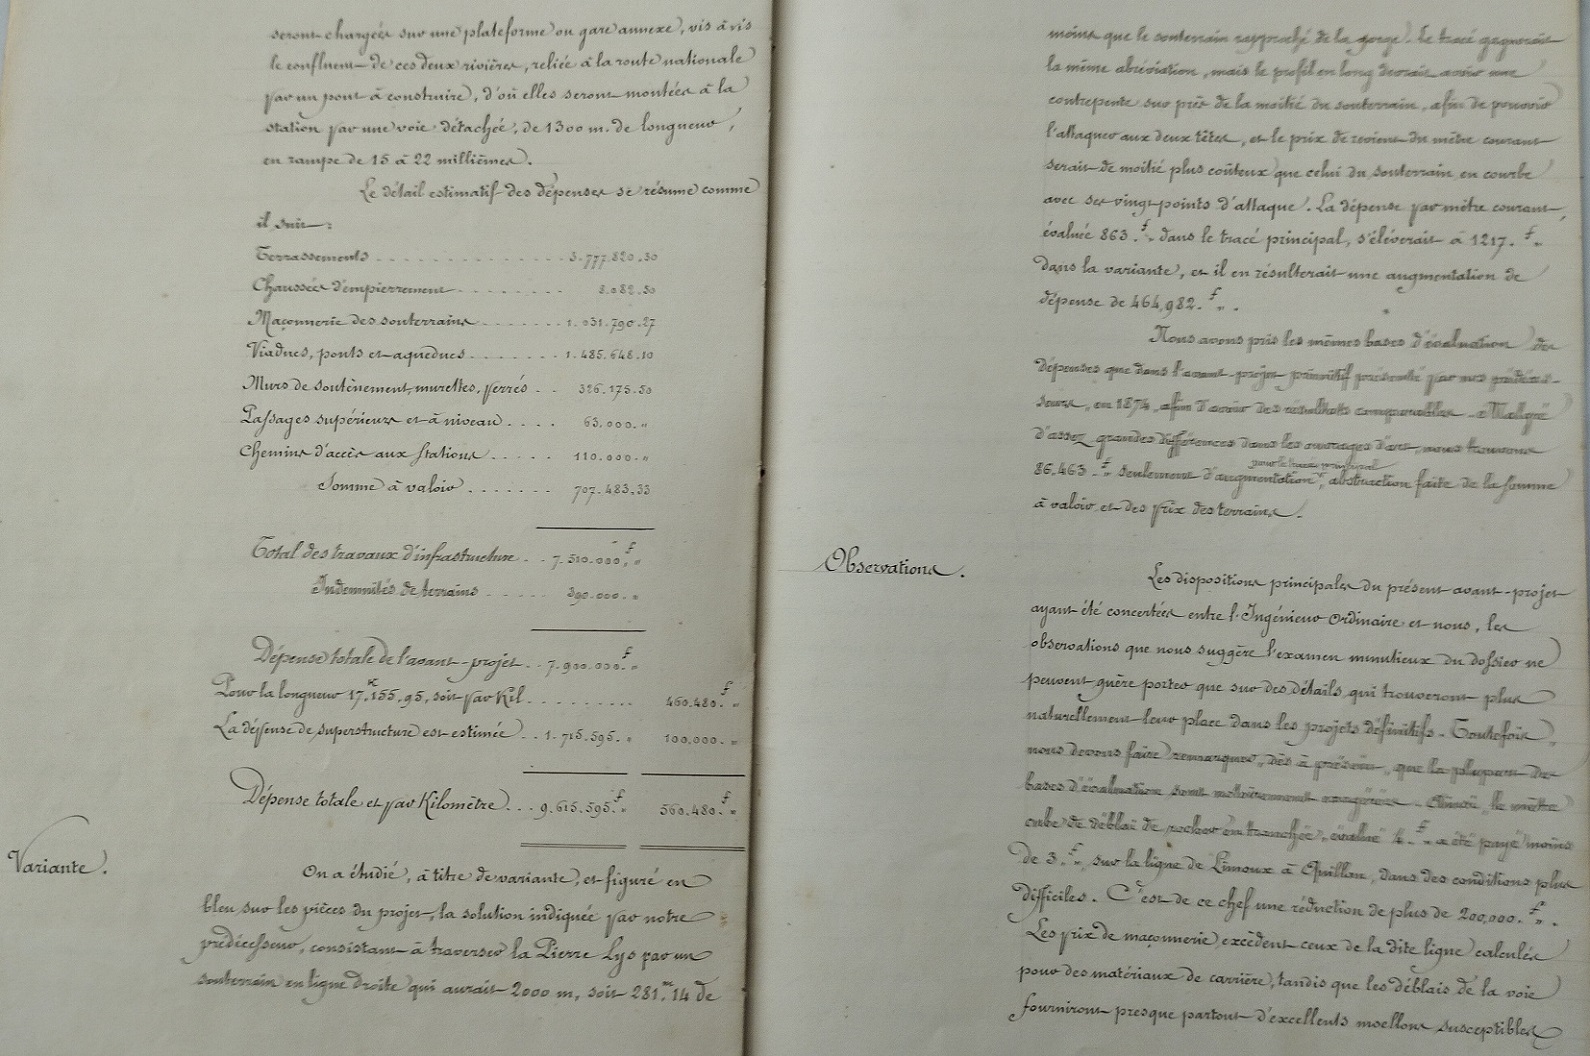 seront chargées sur une plateforme ou gare annexe, vis à vis
le confluent de ces deux rivières, reliée à la route nationale
par un pont à construire, d'où elles seront montées à la
station par une voie détachée, de 1300 m. de longueur,
en rampe de 15 à 22 millièmes.
Le détail estimatif des dépenses se résume comme
il suit :
Terrassements . . . . . . . . . . . . . . . 3.777.820.30
Chaussées d'empierrement . . . . . . . . 8.082.50
Maçonnerie des souterrains . . . . . . . 1.031.790.27
Viaducs, ponts et aqueducs . . . . . . . . 1.485.648.10
Murs de soutènement, murettes, perrés . . 326.175.50
Passages supérieurs et à niveau . . . . 63.000. "
Chemins d'accès aux Stations . . . . . 110.000. "
Somme à valoir . . . . . . . 707.483.33
Total des travaux d'infrastructure . . 7.510.000.f "
Indemnités de terrains . . . . . . 390.000. "
Dépense totale de l'avant-projet . . 7.900.000.f "
Pour la longueur 17.K155.95, soit par Kil . . . . . . . . . 460.480.f "
La dépense de superstructure est estimée . . 1.715.595. " 100,000. "
Dépense totale et par Kilomètre . . . 9.615.595.f " 560.480.f "
Variante.
On a étudié, à titre de variante, et figuré en
bleu sur les pièces du projet, la solution indiquée par notre
prédécesseur, consistant à traverser la Pierre Lys par un
souterrain en ligne droite qui aurait 2000 m, soit 281.m14 de
moins que le souterrain rapproché de la gorge. Le tracé gagnerait
la même abréviation, mais le profil en long devrait avoir une
contrepente sur près de la moitié du souterrain, afin de pouvoir
l'attaquer aux deux têtes, et le prix de revient du mètre courant
serait de moitié plus coûteux que celui du souterrain en courbe
avec ses vingt points d'attaque. La dépense par mètre courant,
évaluée 863.f " dans le tracé principal, s'élèverait à 1217.f "
dans la variante, et il en résulterait une augmentation de
dépense de 464,982.f ".
Nous avons pris les mêmes bases d'évaluation des
dépenses que dans l'avant-projet primitif présenté par nos prédéces-
seurs, en 1874, afin d'avoir des résultats comparables. Malgré
d'assez grandes différences dans les ouvrages d'art, nous trouvons
pour le tracé principal
86,463.f " seulement d'augmentation, abstraction faite de la somme
à valoir et des prix des terrains.
Observations.
Les dispositions principales du présent avant-projet
ayant été concertées entre l'Ingénieur Ordinaire et nous, les
observations que nous suggère l'examen minutieux du dossier ne
peuvent guère porter que sur des détails qui trouveront plus
naturellement leur place dans les projets définitifs. Toutefois,
nous devons faire remarquer, dès à présent, que la plupart des
bases d'évaluation sont notoirement exagérées. Ainsi, le mètre
cube de déblai de rocher en tranchée, évalué 4.f " a été payé moins
de 3.f ", sur la ligne de Limoux à Quillan, dans des conditions plus
difficiles. C'est de ce chef une réduction de plus de 200,000.f ".
Les prix de maçonnerie excèdent ceux de la dite ligne calculés
pour des matériaux de carrière, tandis que les déblais de la voie
fourniront presque partout d'excellents moellons susceptibles